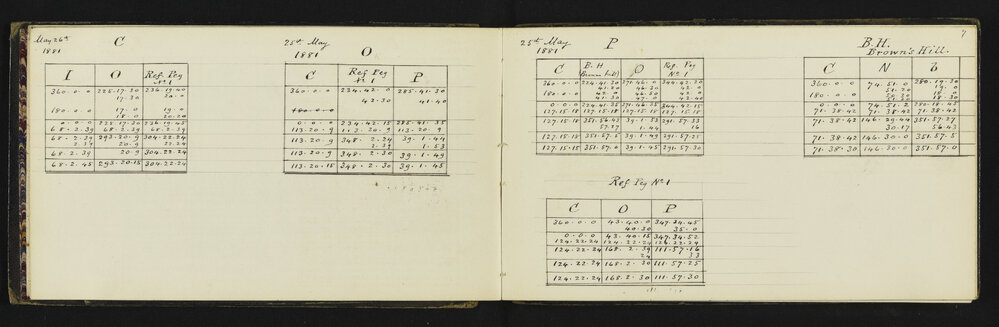 May 26th
1881
C
I O Ref. Peg No 1
360.0.0 225.17.30 236.19.40
17.30 20.0
180.0.0 17.0 19.0
18.0 20.20
0.0.0 225.17.30 236.19.45
68.2.39 68.2.39 68.2.39
68.2.39 293.20.9 304.22.24
2.39 20.9 22.24
68.2.45 293.20.15 304.22.24
25th May
1881
O
C Ref Peg No 1 P
360.0.0 234.42.0 285.41.30
42.30 41.40
180.0.0
0.0.0 234.42.15 285.41.35
113.20.9 113.20.9 113.20.9
113.20.9 348.2.24 39.1.44
2.39 1.53
113.20.9 348.2.30 39.1.49
113.20.15 348.2.30 39.1.45
25th May
1881
P
C B.H Brown's Hill O Ref. Peg No 1
360.0.0 224.41.30 271.46.0 344.42.20
41.20 46.30 42.0
180.0.0 42.0 46.50 42.0
41.30 47.0 42.40
0.0.0 224.41.35 271.46.35 344.42.15
127.15.18 127.15.18 127.15.18
127.15.18 351.56.53 39.1.53 291.57.33
57.27 1.44 16
127.15.18 351.57.5 39.1.49 291.57.25
127.15.15 351.57.0 39.1.45 291.57.30
Ref Peg No 1
C O P
360.0.0 43.40.0 347.34.45
40.30 35.0
0.0.0 43.40.15 347.34.52
124.22.24 124.22.24 124.22.24
124.22.24 168.2.39 111.57.16
24 33
124.22.24 168.2.30 111.57.25
124.22.24 168.2.30 111.57.30
7
B.H.
Brown's Hill.
C N
360.0.0 74.51.0 280.19.30
51.20 19.0
180.0.0 50.30 18
51.50 18.30
0.0.0 74.51.2 280.18.45
71.38.42 71.38.42 71.38.42
71.38.42 146.29.44 351.57.27
30.17 56.43
71.38.42 146.30.0 351.57.5
71.38.30 146.30.0 351.57.0